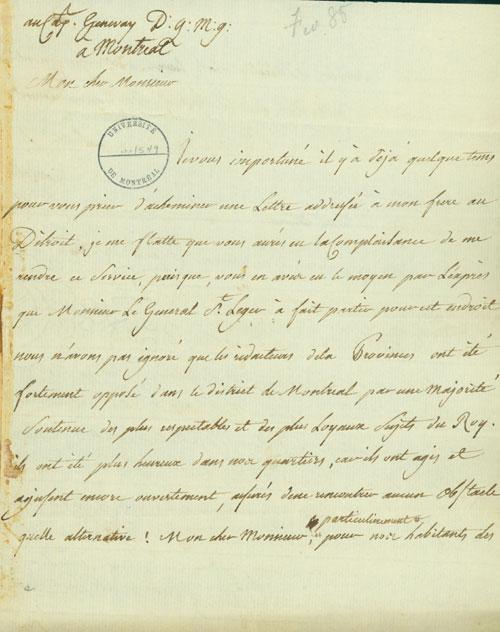 au Cap. Genevay D: q: M: g:
Fev. 85
à Montreal
Mon cher Monsieur
UNIVERSITÉ
DE MONTRÉAL
Je vous importuné il y à déjà quelque tems
pour vous prier d'acheminer une Lettre addressée à mon frere au
Détroit, je me flatte que vous aurés eu la Complaisance de me
rendre ce Service, puisque, vous en aviés eu le moyen par L'exprès
que Monsieur Le General St. Leger à fait partir pour cet endroit
nous n'avons pas ignoré que les rédacteurs dela Province ont été
fortement opposé dans le district de Montreal par une Majorité
Soutenue des plus respectables et des plus Loyaux Sujets du Roy.
ils ont été plus heureux dans nos quartiers, car ils ont agis et
agissent encore ouvertement, assurés dene rencontrer aucun Obstacle
quelle alternative ! Mon cher Monsieur,
particulierement
pour nos habitants des